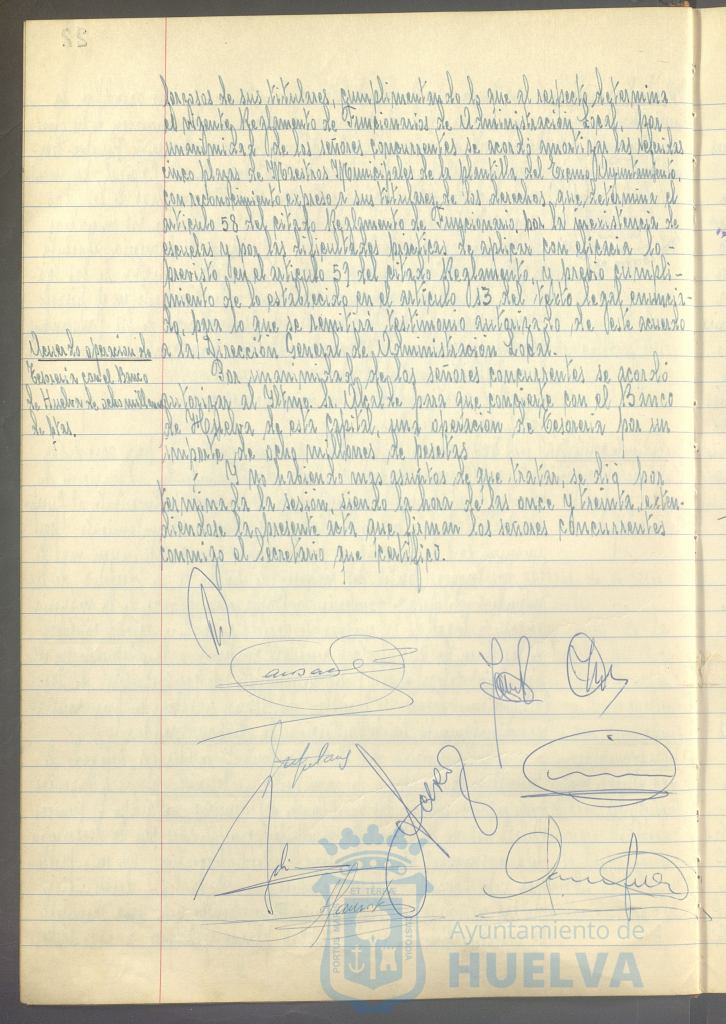 de sus titulares, cumplimentando lo que al respecto determina
el vigente Reglamento de Funcionarios de Administración Local, por
unanimidad de los señores concurrentes se acordó amortizar las referidas
cinco plazas de Maestros Municipales de la plantilla del Excmo. Ayuntamiento,
con reconocimiento expreso a sus titulares de los derechos, que determina el
artículo 58 del citado Reglamento de Funcionario, por la inexistencia de
escuelas y por las dificultades prácticas de aplicar con eficacia lo
previsto en el artículo 59 del citado Reglamento, y previo cumpli-
miento de lo establecido en el artículo 13 del texto legal enuncia-
do, para lo que se remitirá testimonio autorizado de este acuerdo
a la Dirección General de Administración Local.
Acuerdo operación de
Tesorería con el Banco
de Huelva de ocho millones
de ptas.
Por unanimidad de los señores concurrentes se acordó
autorizar al Iltmo. Sr. Alcalde para que concierte con el Banco
de Huelva de esta Capital, una operación de Tesorería por un
importe de ocho millones de pesetas
Y no habiendo mas asuntos de que tratar, se dió por
terminada la sesión, siendo la hora de las once y treinta, exten-
diéndose la presente acta que firman los señores concurrentes
conmigo el Secretario que certifico.
PORTUS MARIS ET TERRE CUSTODIA
Ayuntamiento de
HUELVA